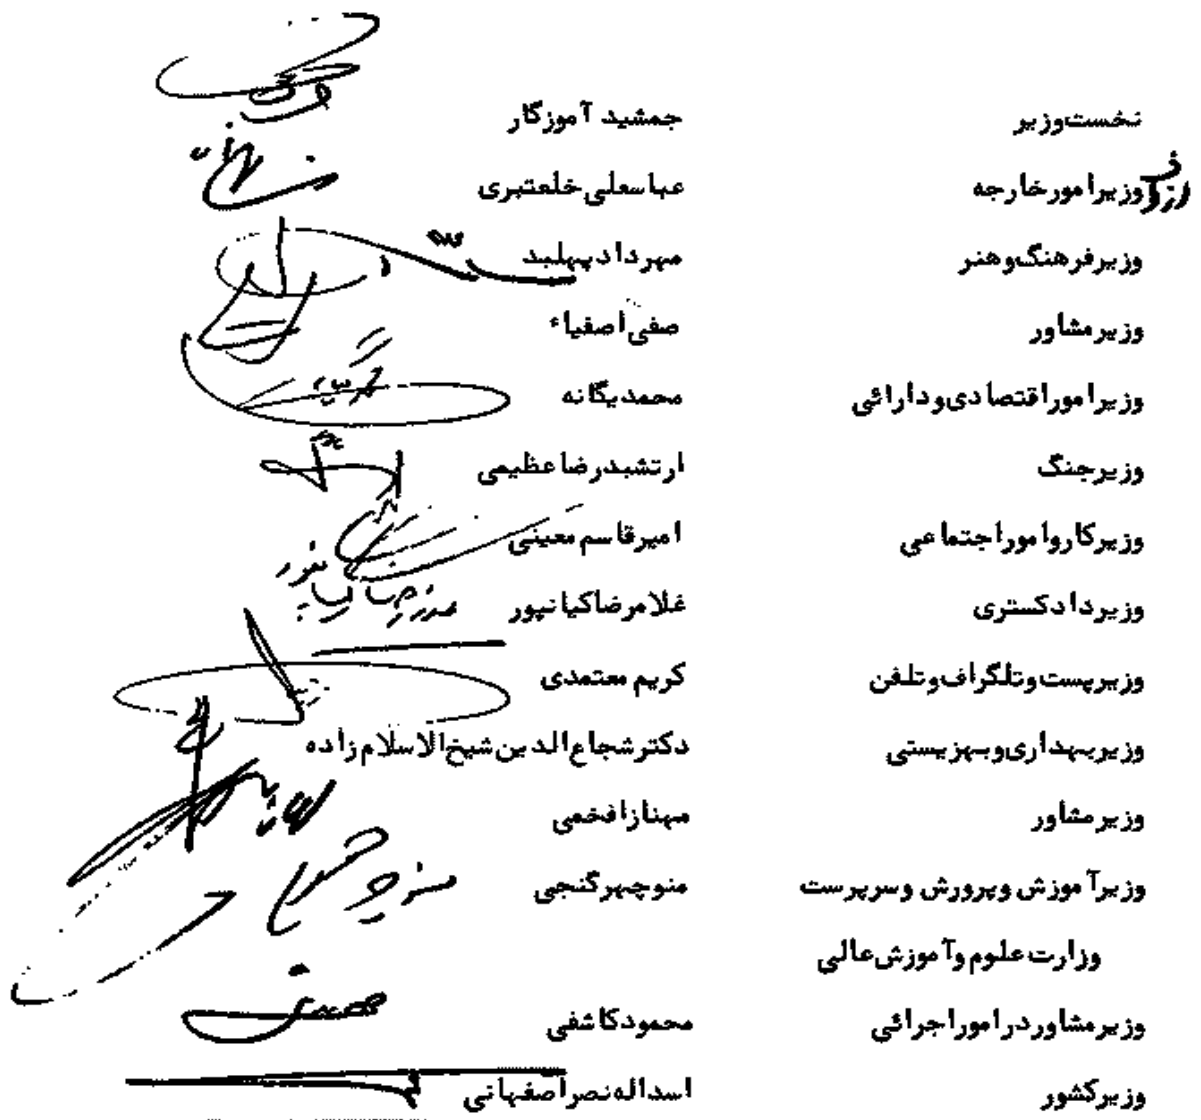 نخست‌وزیر جمشید آموزگار
از طرف وزیر امور خارجه عباسعلی خلعتبری
وزیر فرهنگ و هنر مهرداد پهلبد
وزیر مشاور صفی اصفیاء
وزیر امور اقتصادی و دارائی محمد یگانه
وزیر جنگ ارتشبد رضا عظیمی
وزیر کار و امور اجتماعی امیرقاسم معینی
وزیر دادگستری غلامرضا کیانپور
وزیر پست و تلگراف و تلفن کریم معتمدی
وزیر بهداری و بهزیستی دکتر شجاع‌الدین شیخ‌الاسلام‌زاده
وزیر مشاور مهناز افخمی
وزیر آموزش و پرورش و سرپرست منوچهر گنجی
وزارت علوم و آموزش عالی
وزیر مشاور در امور اجرائی محمود کاشفی
وزیر کشور اسداله نصر اصفهانی